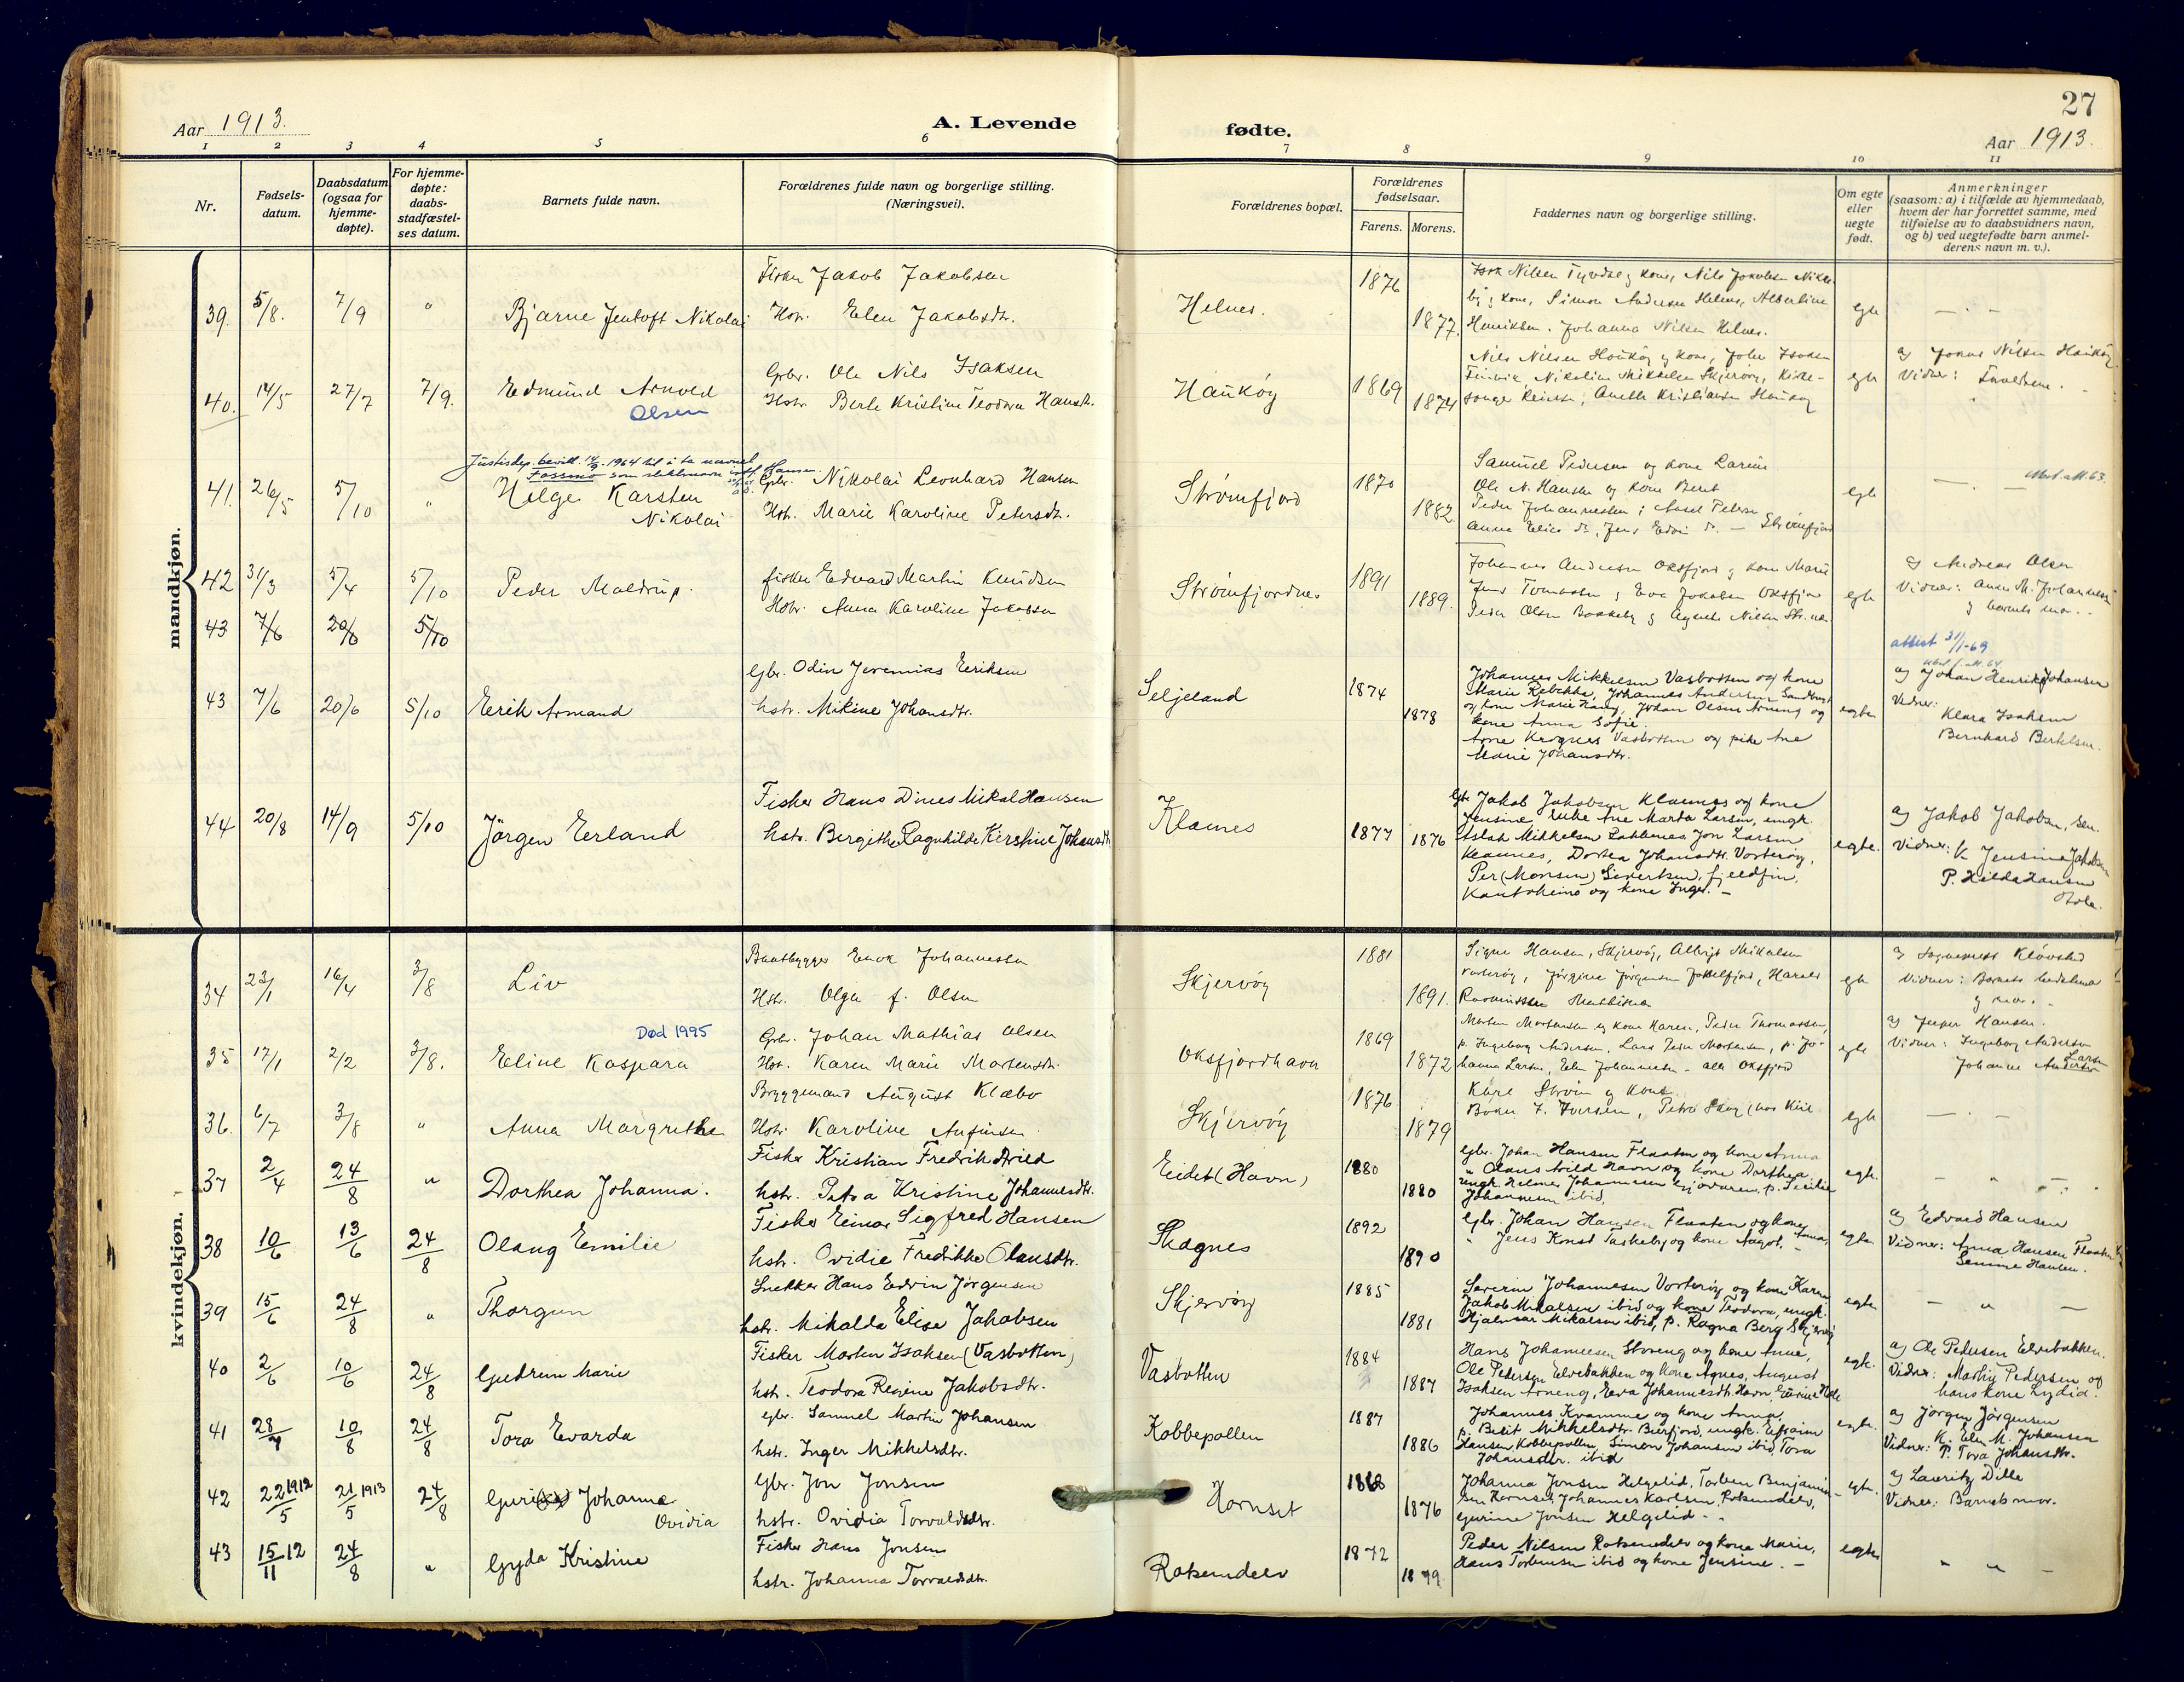 Aar 1913.
A. Levende
fødte.
27
Aar 1913.
1 2 3 4 5 6 7 8 9 10 11
Nr.
Fødsels-
datum.
Daabsdatum
(ogsaa for
hjemme-
døpte).
For hjemme-
døpte:
daabs-
stadfæstel-
ses datum.
Barnets fulde navn.
Forældrenes fulde navn og borgerlige stilling.
(Næringsvei).
Forældrenes bopæl.
Forældrenes
fødselsaar.
Farens. Morens.
Faddernes navn og borgerlige stilling.
Om egte
eller
uegte
født.
Anmerkninger
(saasom: a) i tilfælde av hjemmedaab,
hvem der har forrettet samme, med
tilføielse av to daabsvidners navn,
og b) ved uegtefødte barn anmel-
derens navn m. v.).
mandkjøn.
39. 5/8. 7/9 " Bjarne Jentoft Nikolai
Fisker Jakob Jakobsen
Hstr. Elen Jakobsdtr.
Helnes. 1876 1877.
by og kone, Simon Andersen Helnes, Albertine
Henriksen. Johanna Nilsen Helnes.
egte
40. 14/5 27/7 7/9. Edmund Arnold
Olsen
Gbr. Ole Nils Isaksen
Hstr. Berte Kristine Teodora Hansdtr.
Haukøy 1869 1874
Nils Nilsen Haukøy og kone, John Isaksen
egte
a) Jonas Nilsen Haukøy
Vidner: Forældrene.
Justisdep. bevill. 14/9-1964 til å ta navnet
Fossmo som slektsnavn istf. Hansen.
41. 26/5 5/10 " Helge Karsten
Nikolai
Gbr. Nikolai Leonhard Hansen
Hstr. Marie Karoline Petersdtr.
Strømfjord 1870 1882
Samuel Pedersen og kone Larine
Ole N. Hansen og kone Berit
egte
42 31/3 5/4 5/10 Peder Maldrup.
fisker Edvard Martin Knudsen
Hstr. Anna Karoline Jakobsen
Strømfjordnes 1891 1889.
Johannes Andersen Oksfjord og kone Marie
egte
a) Andreas Olsen
Vidner: Anna M. Johannessen
og barnets mor.
43 7/6 20/6 5/10
attest 31/1-69
43 7/6 20/6 5/10 Eerik Armand
gbr. Odin Jeremias Eeriksen
hstr. Mikine Johansdtr.
Seljeland 1874 1878
Johannes Mikkelsen Vasbotten og kone
Marie Rebekka, Johannes Andersen
og kone Marie Hang, Johan Olsen Arneng og
kone Anna Sofie.
Arne Krognes Vasbotten og pike Ane
Marie Johansdtr.
egte
a) Johan Henrik Johansen
Vidner:
Klara Isaksen
Bernhard Bertelsen.
44 20/8 14/9 5/10 Jørgen Eerland
Fisker Hans Dines Mikal Hansen
hstr. Bergithe Ragnhilde Kirstine Johansdtr.
Klamnes 1877 1876
gbr. Jakob Jakobsen Klamnes og kone
Jensine, enke Ane Marda Larsen, ungk.
Aslak Mikkelsen Lakkenes, Jon Larsen
Klamnes, Dortea Johansdtr. Vorterøy,
Per (Monsen) Sivertsen, fjeldfin,
Kautokeino og kone Inger. -
egte.
a) Jakob Jakobsen, sen.
Vidner: K. Jensine Jakobsen
P. Hilda Hansen
kvindekjøn.
34 23/1 16/4 3/8 Liv
Baatbygger Enok Johannessen
Hstr. Olga f. Olsen
Skjervøy 1881 1891.
Signe Hansen, Skjervøy, Albrigt Mikalsen
egte
35 17/1 2/2 3/8. Eeline Kaspara
Død 1995
Gbr. Johan Mathias Olsen
Hstr. Karen Marie Mortensdtr.
Oksfjordhavn 1869 1872
Morten Mortensen og kone Karen, Peder Thomassen,
p. Ingeborg Andersen, Lars Peder Mortensen, p. Jo-
hanna Larsen, Elen Johannesen - alle Oksfjord
egte
a) Jesper Hansen.
Vidner: Ingeborg Andersen
Johanne Andersen
Larsen
36. 6/7 3/8 " Anna Margrethe
Bryggemand August Klæbo
Hstr. Karoline Anfinsen
Skjervøy 1876 1879
egte
37 2/4 24/8 " Dorthea Johanna.
Fisker Kristian Fredrik Arild
hstr. Petra Kristine Johannesdtr.
Eidet (Havn) 1880 1880
gbr. Johan Hansen Flaaten og kone Anna
" Olaus Arild Havn og kone Dorthea
Johannesen ibid.
egte.
38 10/6 13/6 24/8 Olaug Eemilie
Fisker Einar Sigfred Hansen
hstr. Ovidie Fredrikke Olausdtr.
Skagnes 1892 1890
gbr. Johan Hansen Flaaten og kone Anna,
" Jens Konst Taskeby og kone Aagot. -
egte
a) Edvard Hansen
Vidner: Anna Hansen Flaaten
Hansen.
39 15/6 24/8 " Thorgun
Snekker Hans Edvin Jørgensen
hstr. Mikalda Elise Jakobsen
Skjervøy 1885 1881
Severin Johannesen Vorterøy og kone Karen
Jakob Mikalsen ibid og kone Teodora, ungk.
Hjalmar Mikalsen ibid, p. Ragna Berg Skjervøy
egte
— " —
40 2/6 10/6 24/8 Gudrun Marie
Fisker Morten Isaksen (Vasbotten)
hstr. Teodora Regine Jakobsdtr.
Vasbotten 1884 1887
Hans Johannesen Storeng og kone Anne,
Ole Pedersen Elvebakken og kone Agnes, August
Isaksen Arneng, Eeva Johannesdtr. Havn,
egte.
a) Ole Pedersen Elvebakken.
Vidner: Martin Pedersen og
hans kone Lydia.
41 28/7 10/8 24/8 Tora Evarda
gbr. Samuel Martin Johansen
hstr. Inger Mikkelsdtr.
Kobbepollen 1887 1886
Johannes Kvamme og kone Anna,
p. Berit Mikkelsdtr. Burfjord, ungk. Efraim
Hansen, Kobbepollen, Simon Johansen ibid, Tora
Johansdtr. ibid
egte.
a) Jørgen Jørgensen
Vidner: K. Elen M. Johansen
P. Tora Johansdtr.
42 22/5 1912 21/5 1913 24/8 Guri Johanne
Ovidia
Gbr. Jon Jonsen
hstr. Ovidia Torvaldsdtr.
Hornset 1868 1876
Johanna Jonsen Helgelid, Torben Benjamin-
sen Hornset, Johannes Karlsen, Rotsundelv,
Gurine Jonsen Helgelid - -
egte.
a) Lauritz Dille
Vidner: Barnets mor.
43 15/11 12 24/8 " Gyda Kristine
Fisker Hans Jonsen
hstr. Johanna Torvaldsdtr.
Rotsundelv 1872 1879.
Peder Nilsen Rotsundelv og kone Marie,
Hans Torbensen ibid og kone Jensine. -
egte
" " -